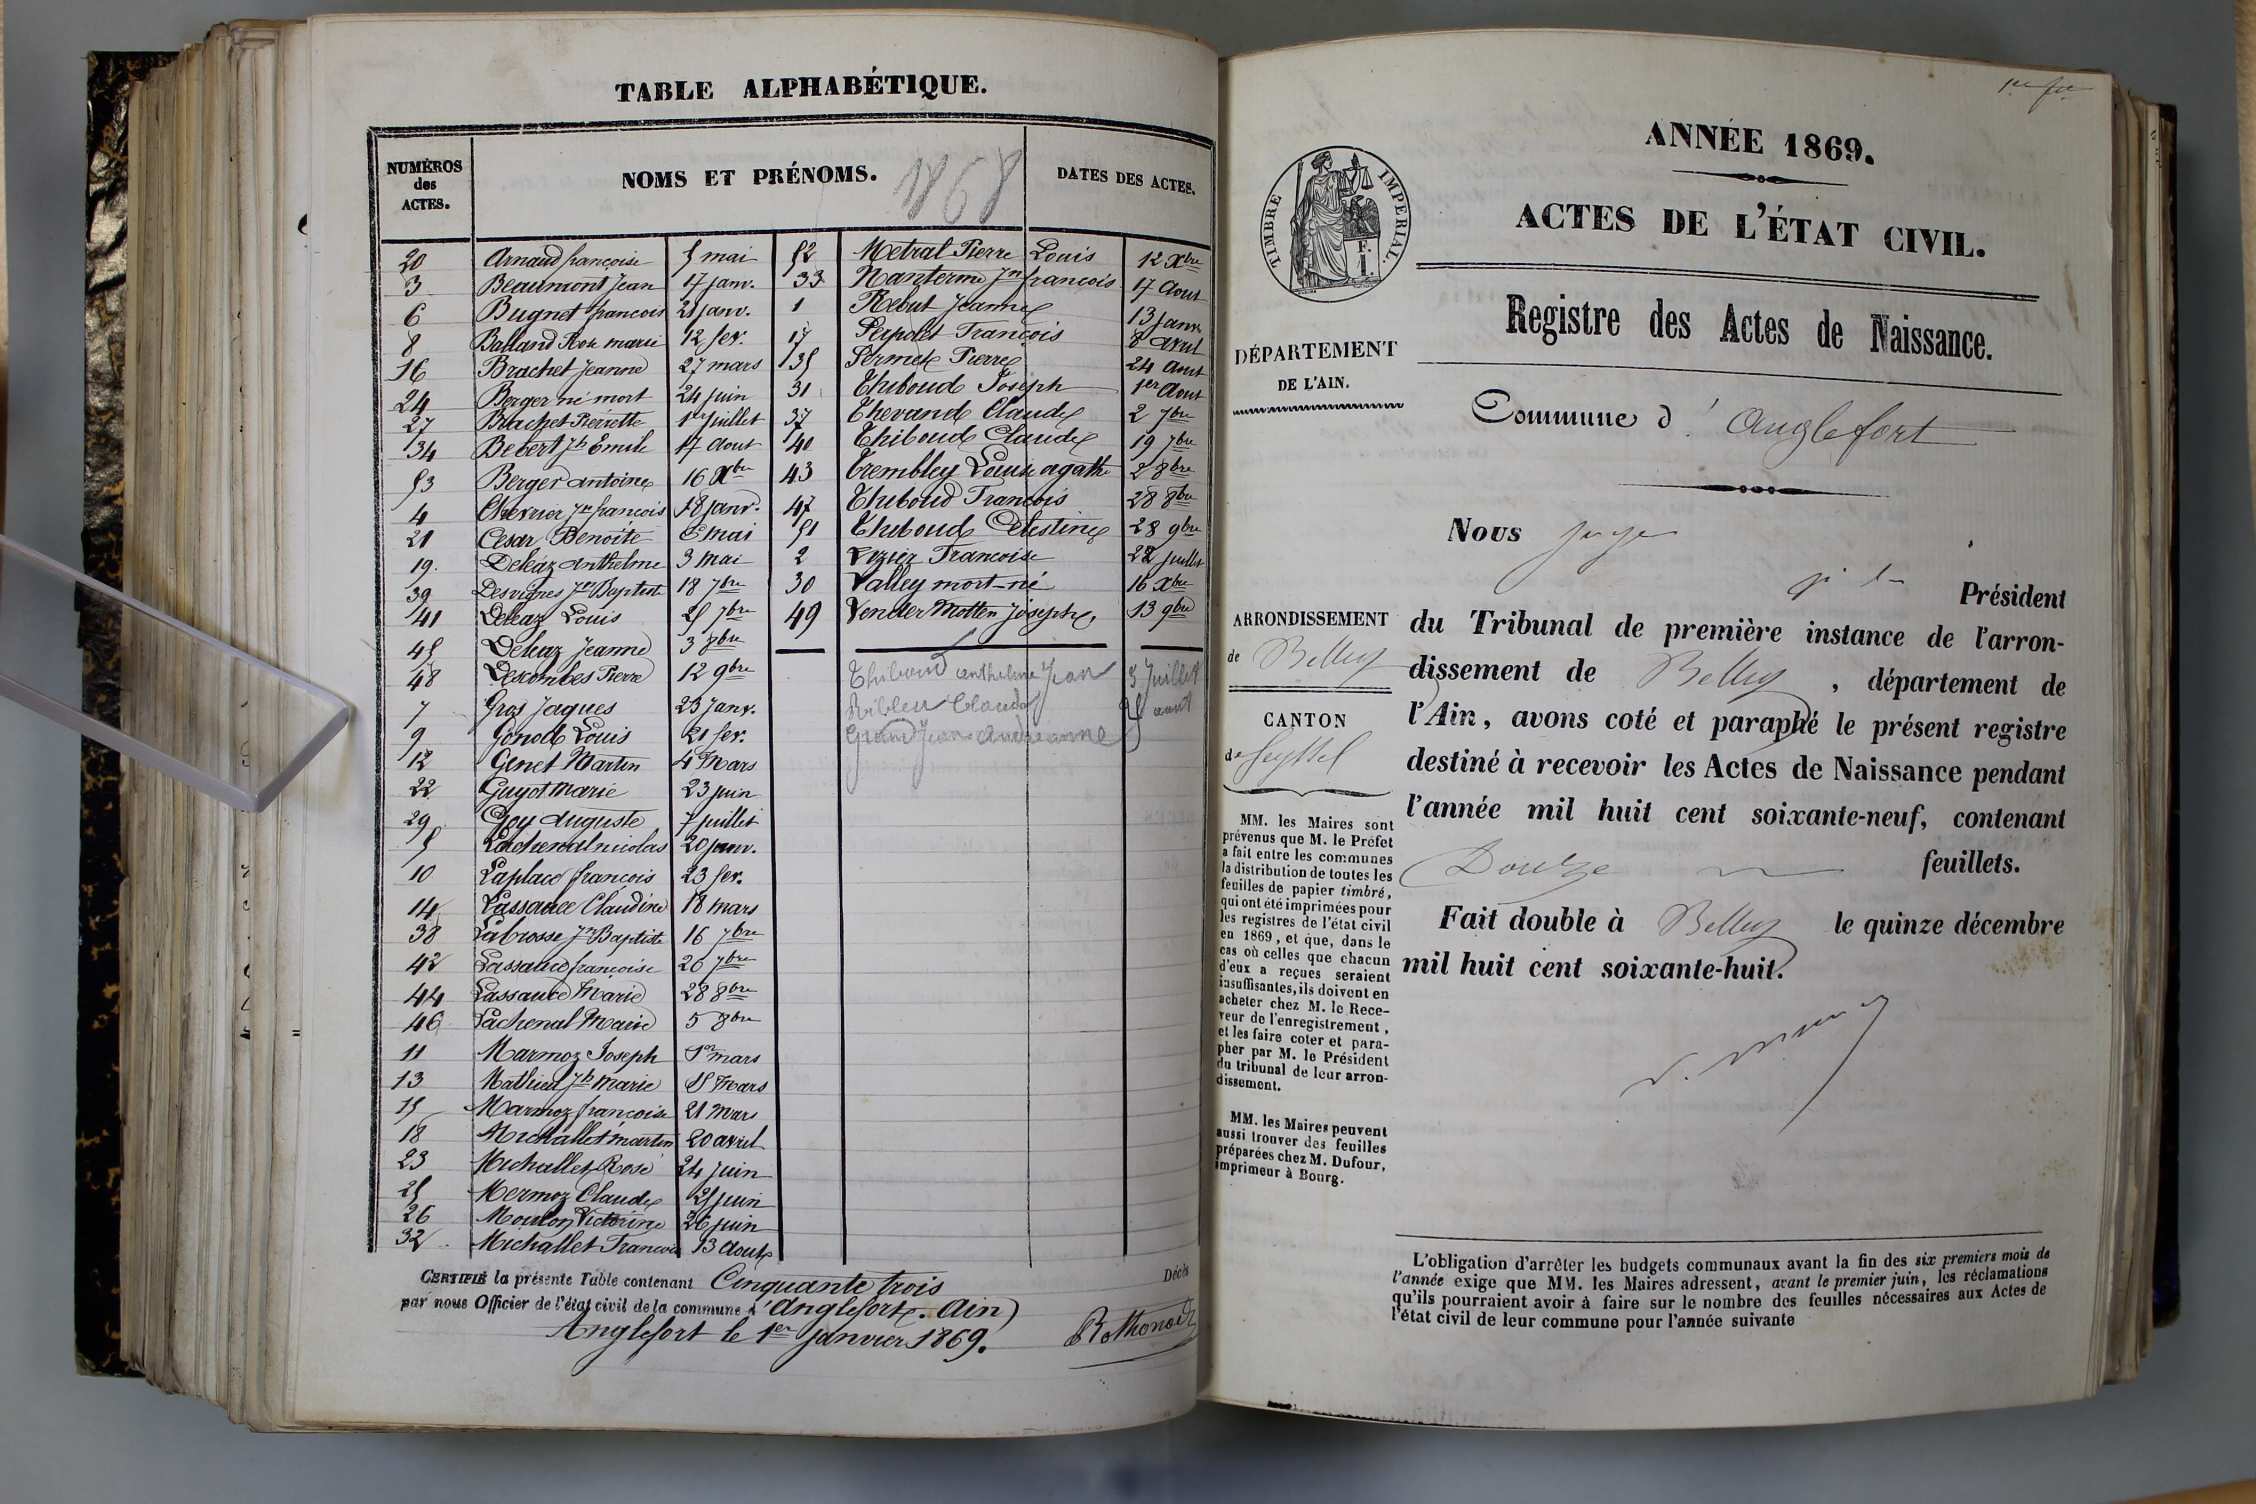 TABLE ALPHABÉTIQUE.
NUMÉROS
des
ACTES.
NOMS ET PRÉNOMS.
1868
DATES DES ACTES.
20 Arnaud françoise 5 mai
3 Beaumont Jean 17 janv.
6 Bugnet francois 21 janv.
8 Balland Rose marie 12 fev.
16 Brachet Jeanne 27 mars
24 Berger né mort 24 juin
27 Brachet Pierrette 1er juillet
34 Bebert Jh Emile 17 Aout
53 Berger antoine 16 Xbre
4 Chevrier Jn francois 18 janv.
21 Cesar Benoite 6 mai
19. Deléaz anthelme 3 mai
39 Desvignes Jn Baptiste 18 7bre
41 Deleaz Louis 25 7bre
45 Deleaz Jeanne 3 8bre
48 Descombes Pierre 12 9bre
7 Gros Jaques 23 Janv.
9 Gonod Louis 21 fev.
12 Genet Martin 4 Mars
22 Guyot Marie 23 juin
29 Goy auguste 7 juillet
5 Lachenal nicolas 20 janv.
10 Laplace françois 23 fev.
14 Lassauce Claudine 18 mars
38 Labrosse Jn Baptiste 16 7bre
42 Lassauce françoise 26 7bre
44 Lassauce Marie 28 8bre
46 Lachenal Marie 5 8bre
11 Marmoz Joseph 1er mars
13 Mathieu Jh Marie 15 Mars
15 Marmoz françoise 21 Mars
18 Michallet martin 20 avril
23 Michallet Rose 24 juin
25 Mermoz Claude 25 juin
26 Moulon Victorine 26 juin
32 Michallet Francois 13 Aout
52 Metral Pierre Louis 12 Xbre
33 Nanterme Jn francois 17 Aout
1 Rebut Jeanne 13 janv
17 François 8 avril
35 Pierre 24 Aout
31 Thiboud Joseph 1er Aout
37 Thevand Claude 2 7bre
40 Thiboud Claude 19 7bre
43 Trembley Louise agathe 2 8bre
47 Thiboud Francois 28 8bre
51 Thiboud Celestine 28 9bre
2 Vizier Francoise 22 juillet
30 Valley mort-né 16 Xbre
49 Vender Motten Joseph 13 9bre
Thiboud anthelme Jean 5 Juillet
Claude 25 aout
Grand Jean
CERTIFIÉ la présente Table contenant Cinquante trois Décès
par nous Officier de l'état civil de la commune d'Anglefort. Ain)
Anglefort le 1er janvier 1869.
Bothonod
1re fle
ANNÉE 1869.
ACTES DE L'ÉTAT CIVIL.
TIMBRE IMPERIAL.
F.
I.
Registre des Actes de Naissance.
DÉPARTEMENT
DE L'AIN.
Commune d' Anglefort
Nous juge
Président
du Tribunal de première instance de l'arron-
dissement de Belley, département de
l'Ain, avons coté et paraphé le présent registre
destiné à recevoir les Actes de Naissance pendant
l'année mil huit cent soixante-neuf, contenant
Douze feuillets.
Fait double à Belley le quinze décembre
mil huit cent soixante-huit.
ARRONDISSEMENT
de Belley
CANTON
de Seyssel
MM. les Maires sont
prévenus que M. le Préfet
a fait entre les communes
la distribution de toutes les
feuilles de papier timbré,
qui ont été imprimées pour
les registres de l'état civil
en 1869, et que, dans le
cas où celles que chacun
d'eux a reçues seraient
insuffisantes, ils doivent en
acheter chez M. le Rece-
veur de l'enregistrement,
et les faire coter et para-
pher par M. le Président
du tribunal de leur arron-
dissement.
MM. les Maires peuvent
aussi trouver des feuilles
préparées chez M. Dufour,
imprimeur à Bourg.
L'obligation d'arrêter les budgets communaux avant la fin des six premiers mois de
l'année exige que MM. les Maires adressent, avant le premier juin, les réclamations
qu'ils pourraient avoir à faire sur le nombre des feuilles nécessaires aux Actes de
l'état civil de leur commune pour l'année suivante